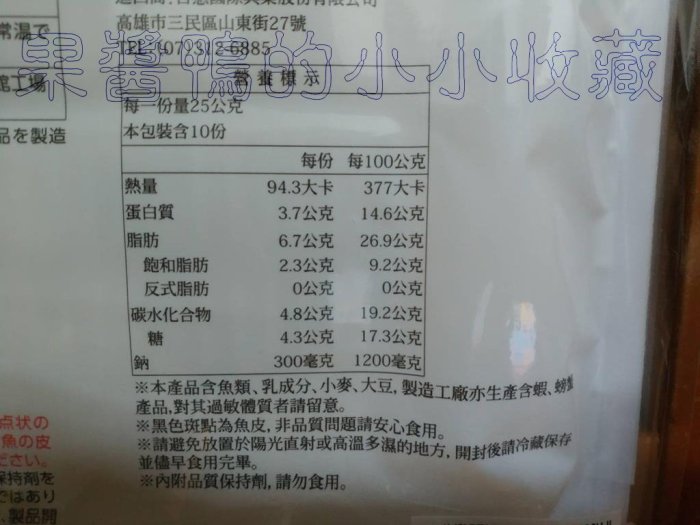 高雄市三民區山東街27號
TEL:(07)312-6885
果醬鴨的小小收藏
營養標示
每一份量25公克
本包裝含10份
每份 每100公克
熱量 94.3大卡 377大卡
蛋白質 3.7公克 14.6公克
脂肪 6.7公克 26.9公克
飽和脂肪 2.3公克 9.2公克
反式脂肪 0公克 0公克
碳水化合物 4.8公克 19.2公克
糖 4.3公克 17.3公克
鈉 300毫克 1200毫克
※本產品含魚類、乳成分、小麥、大豆, 製造工廠亦生產含蝦、螃蟹
產品, 對其過敏體質者請留意。
※黑色斑點為魚皮, 非品質問題請安心食用。
※請避免放置於陽光直射或高溫多濕的地方, 開封後請冷藏保存
並儘早食用完畢。
※內附品質保持劑, 請勿食用。
常温で
工場
品を製造
点状の
魚の皮
ださい。
保持剤を
ではあり
製品開